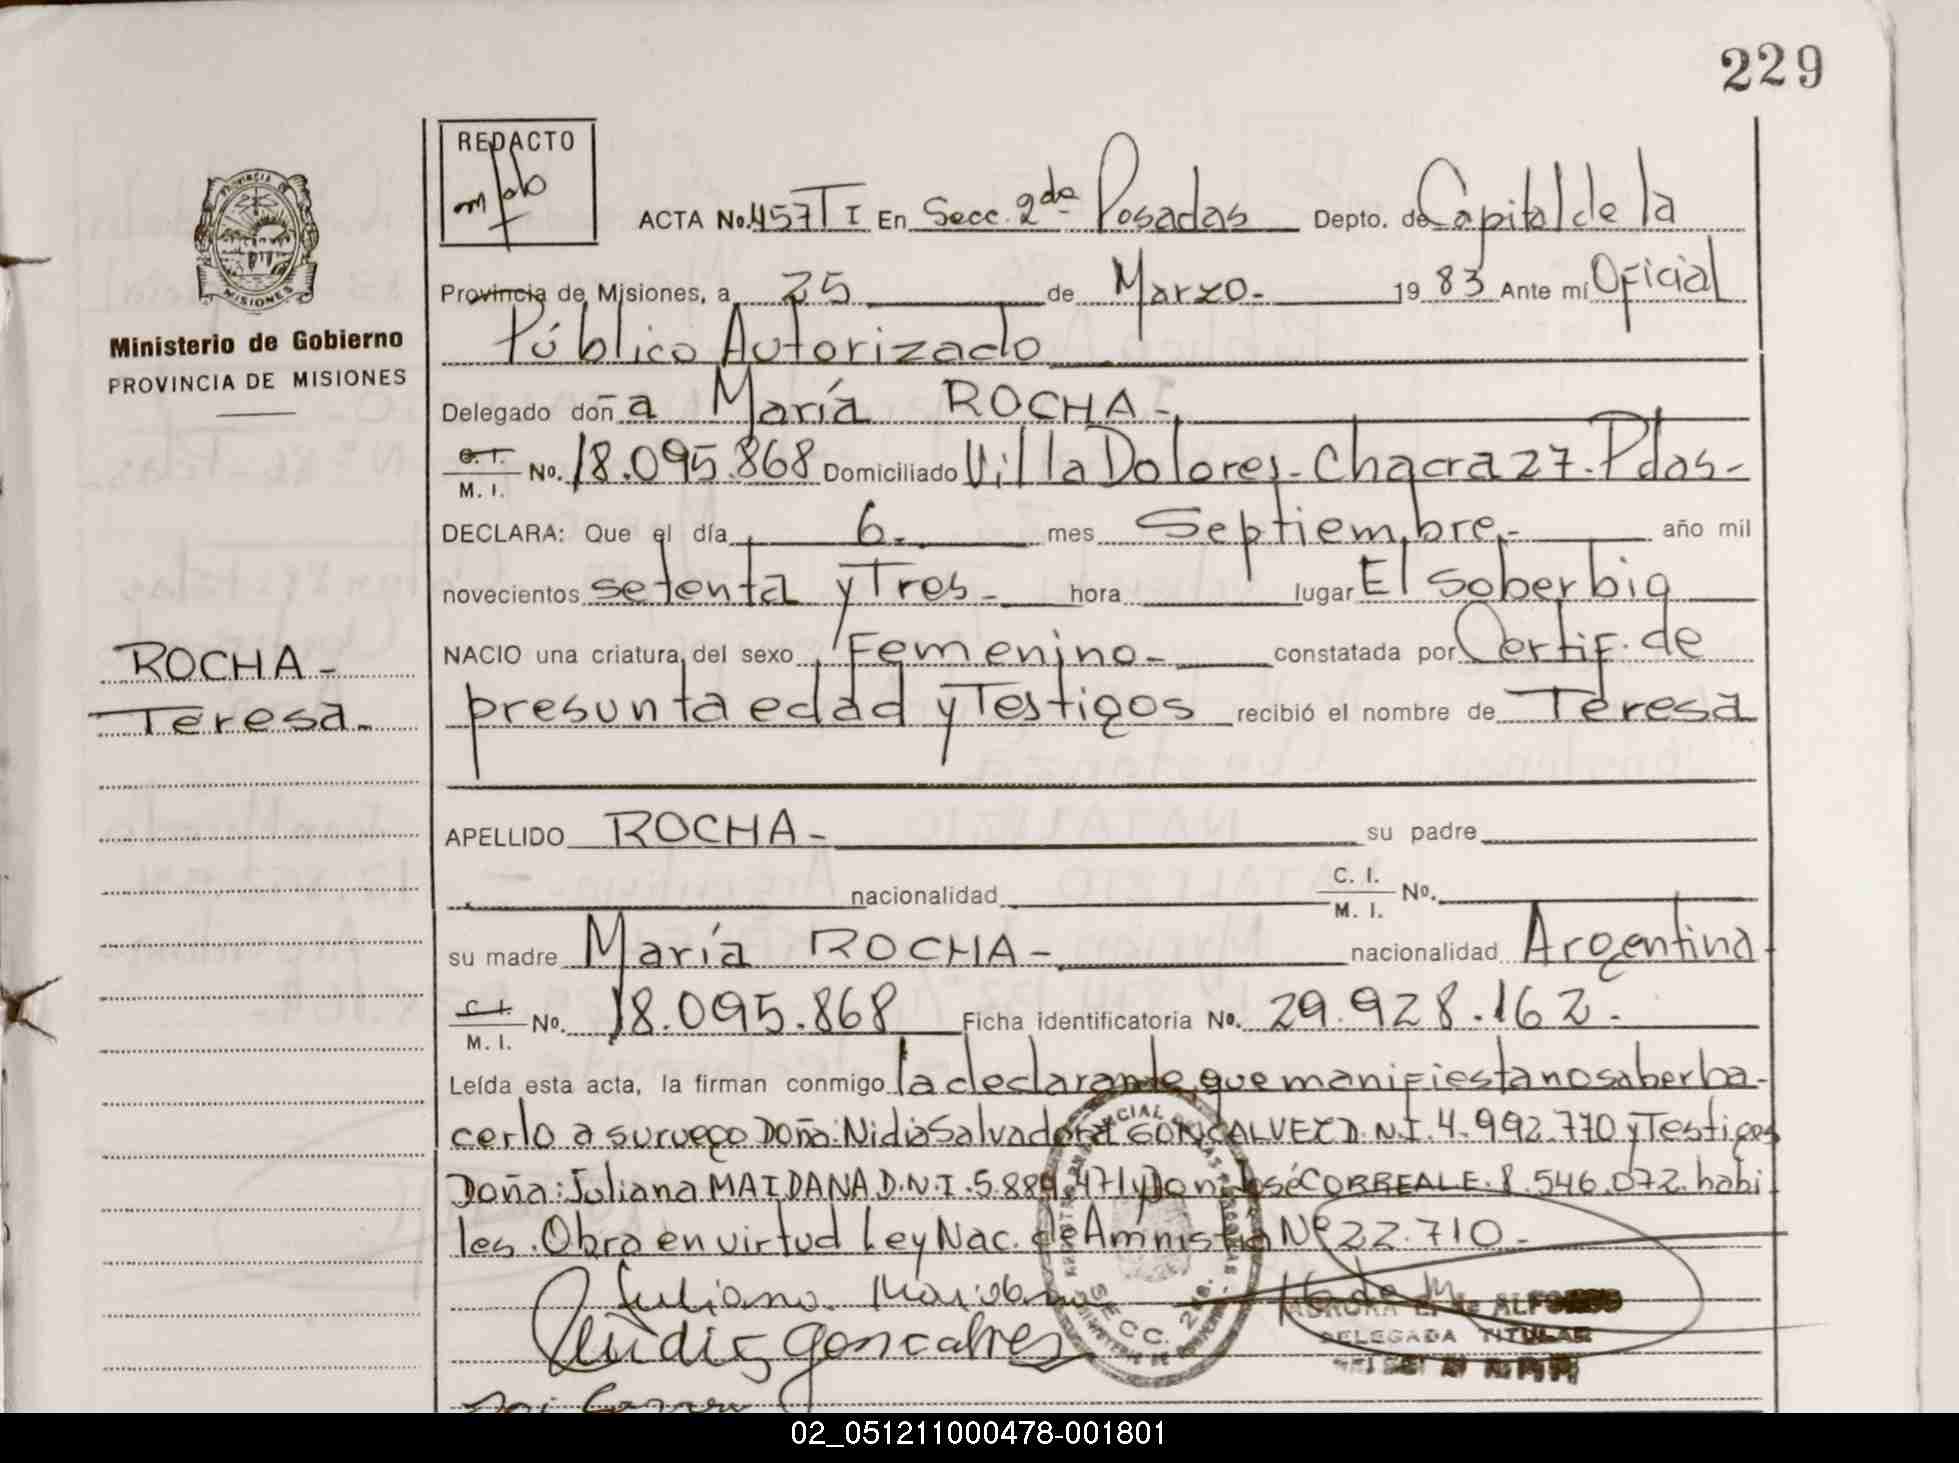 229
REDACTO
PROVINCIA DE
MISIONES
Ministerio de Gobierno
PROVINCIA DE MISIONES
ACTA No. 457 T I En Secc. 2da Posadas Depto. de Capital de la
Provincia de Misiones, a 25 de Marzo.- 1983 Ante mí Oficial
Público Autorizado
Delegado doña María ROCHA-
C. I.
M. I. No. 18.095.868 Domiciliado Villa Dolores-Chacra 27. Pdas-
DECLARA: Que el día 6.- mes Septiembre.- año mil
novecientos setenta y Tres- hora lugar El soberbio
NACIO una criatura del sexo Femenino- constatada por Certif. de
presunta edad y Testigos recibió el nombre de Teresa
ROCHA-
Teresa.
APELLIDO ROCHA- su padre
nacionalidad C. I.
M. I. No.
su madre María ROCHA- nacionalidad Argentina
C. I.
M. I. No. 18.095.868 Ficha identificatoria No. 29.928.162.-
Leída esta acta, la firman conmigo la declarante, que manifiesta no saber ha-
cerlo a su ruego Doña: Nidia Salvadora GONCALVEZ D.N.I. 4.992.770 y Testigos
Doña: Juliana MAIDANA D.N.I. 5.889.471 y Don: José CORREALE. 8.546.072. habi
les. Obra en virtud Ley Nac. de Amnistia Nº 22.710-
Juliana
goncalves
SECC. 2da.
DELEGADA TITULAR
02_051211000478-001801